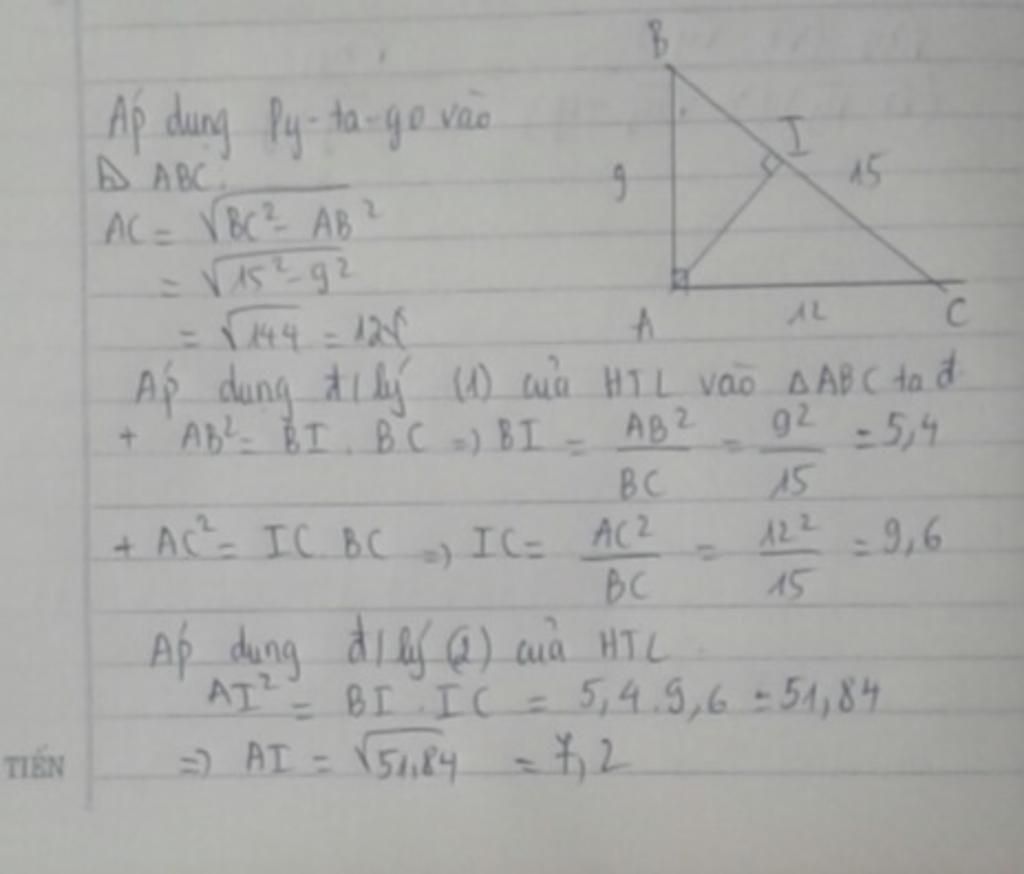 Áp dung Py-ta-go vào
Δ ABC.
AC = √BC² - AB²
= √15² - 9²
= √144 = 12
Áp dung đ/lý (1) của HTL vào ΔABC ta đ
+ AB² = BI . BC => BI = AB²/BC = 9²/15 = 5,4
+ AC² = IC BC => IC = AC²/BC = 12²/15 = 9,6
Áp dung đ/lý (2) của HTL
AI² = BI . IC = 5,4 . 9,6 = 51,84
=> AI = √51,84 = 7,2
B
I
9
15
A
12
C
TIẾN